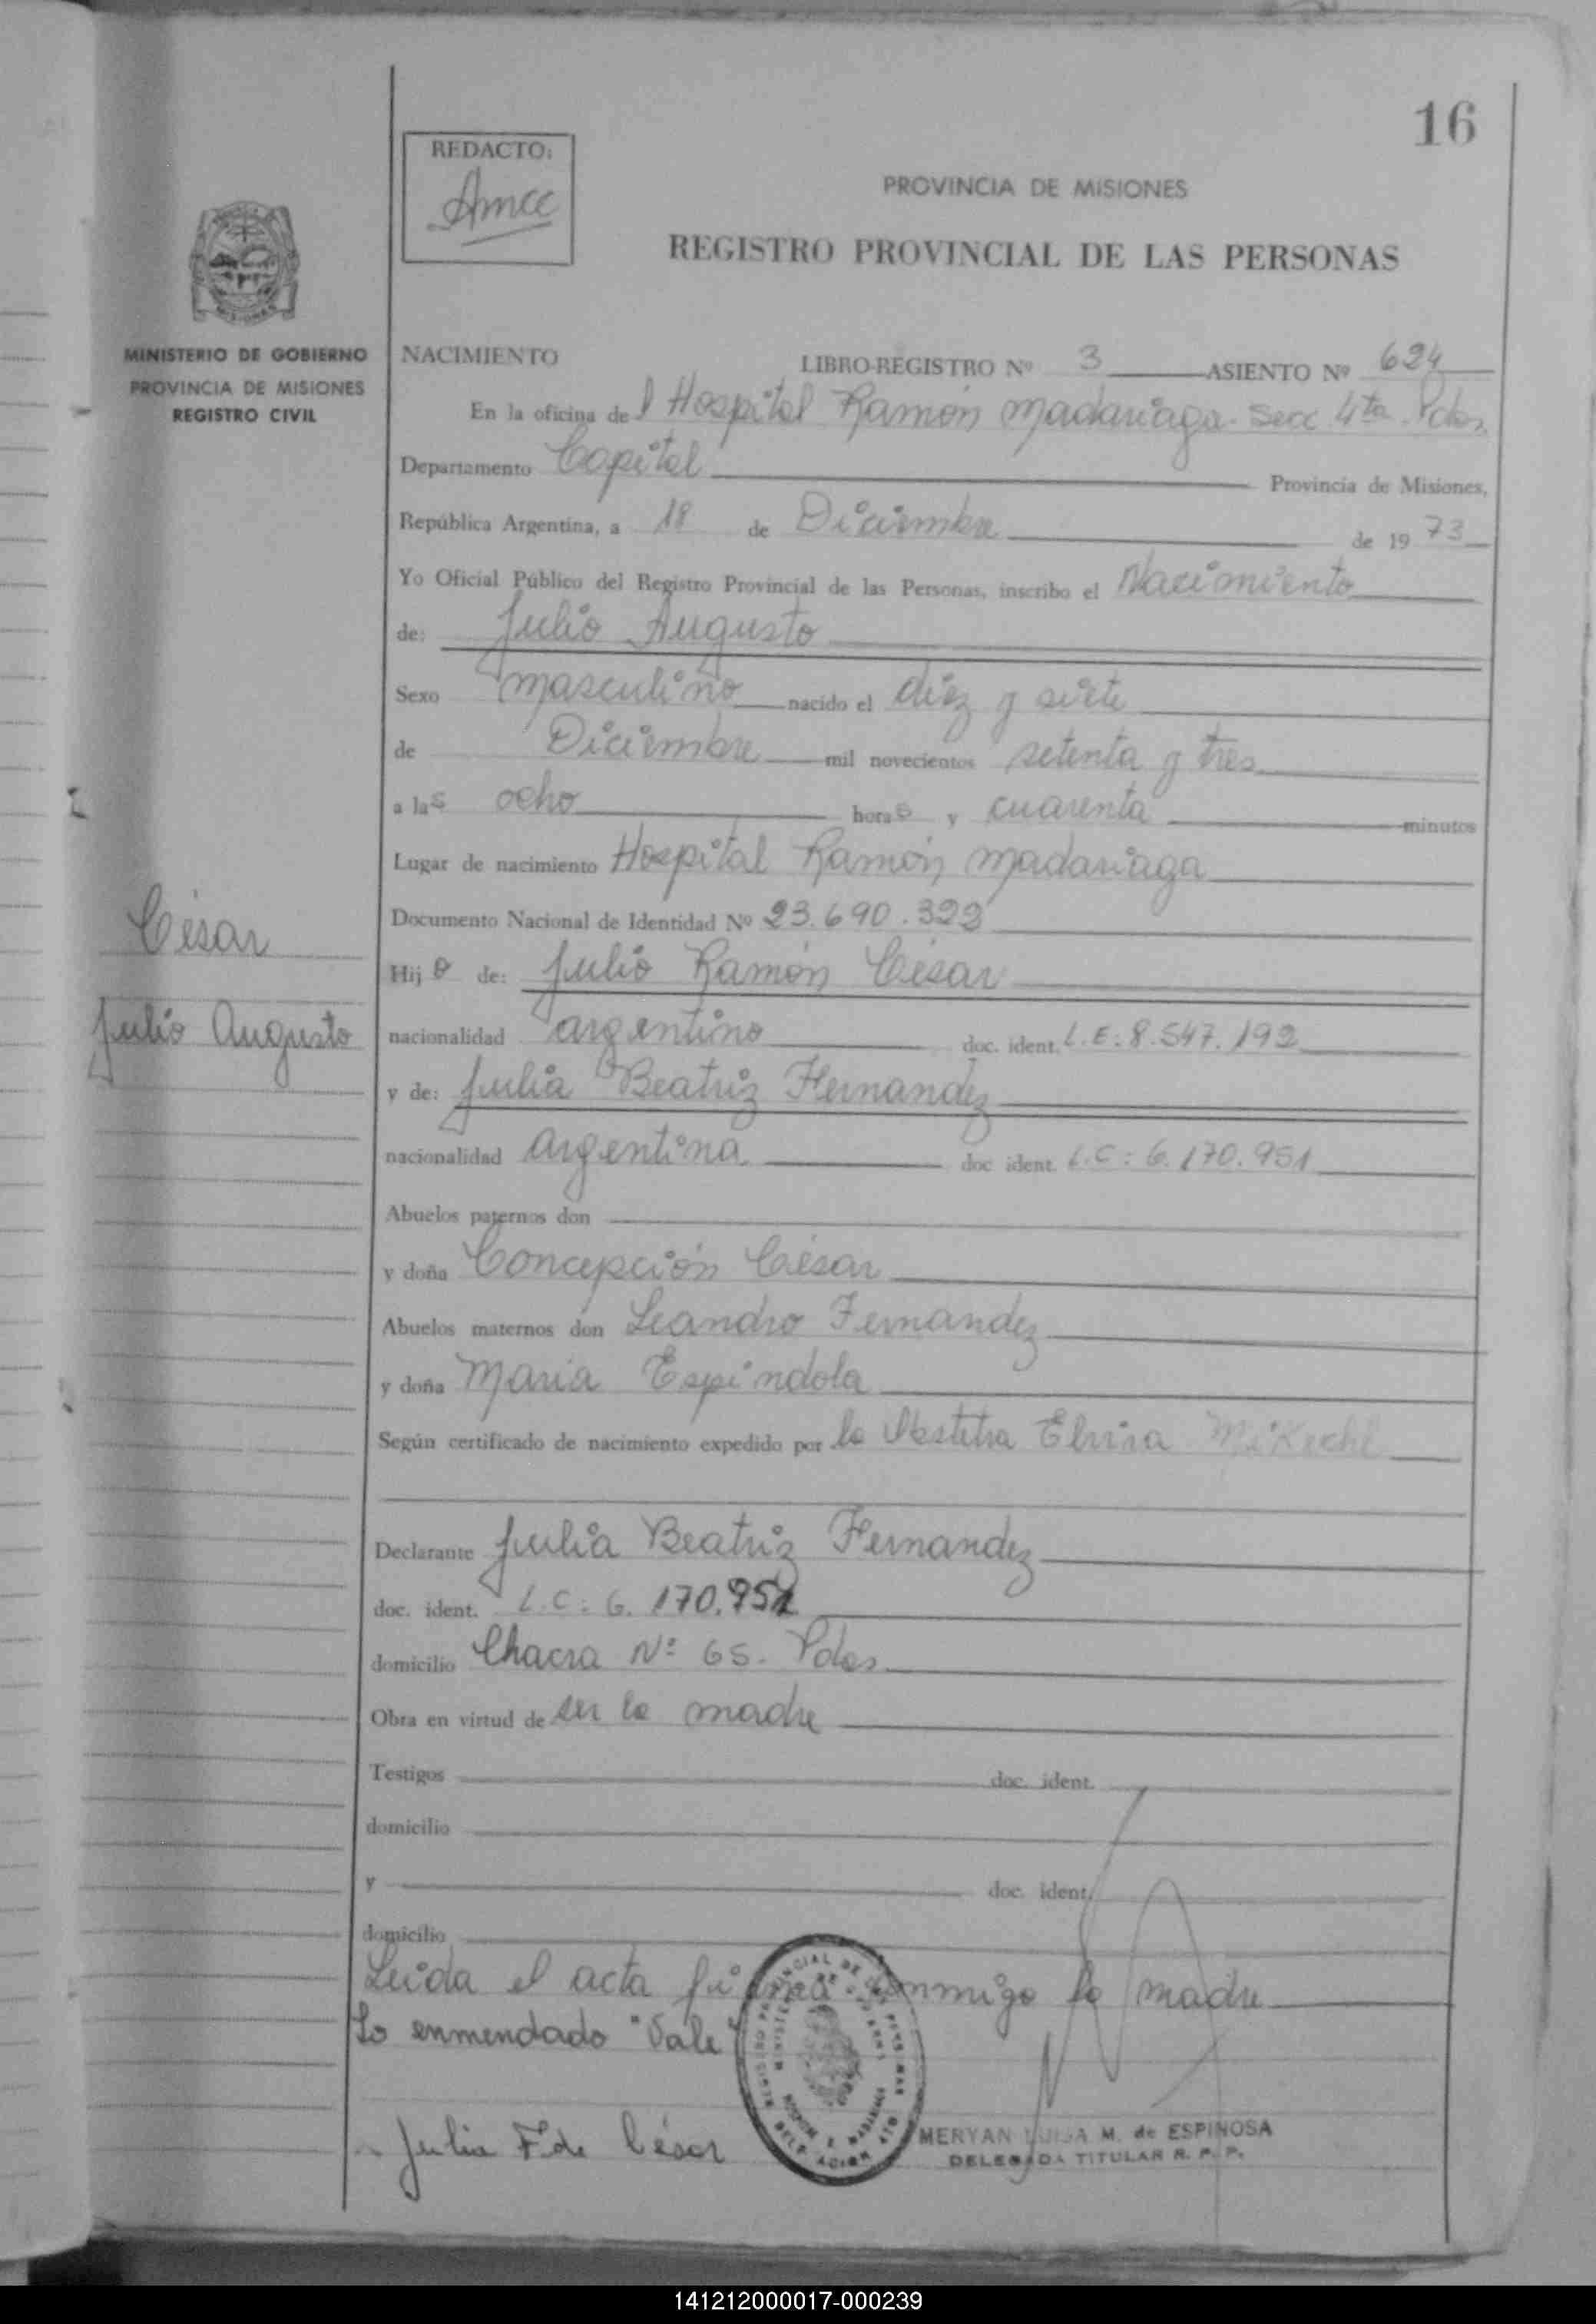 16
REDACTO:
Amcc
PROVINCIA DE MISIONES
REGISTRO PROVINCIAL DE LAS PERSONAS
MINISTERIO DE GOBIERNO
PROVINCIA DE MISIONES
REGISTRO CIVIL
César
Julio Augusto
NACIMIENTO LIBRO-REGISTRO Nº 3 ASIENTO Nº 624
En la oficina del Hospital Ramón Madariaga - Secc. 4ta. Pdas.
Departamento Capital Provincia de Misiones,
República Argentina, a 18 de Diciembre de 1973
Yo Oficial Público del Registro Provincial de las Personas, inscribo el Nacimiento
de: Julio Augusto
Sexo masculino nacido el diez y siete
de Diciembre mil novecientos setenta y tres
a las ocho horas y cuarenta minutos
Lugar de nacimiento Hospital Ramón Madariaga
Documento Nacional de Identidad Nº 23.690.322
Hijo de: Julio Ramón César
nacionalidad argentino doc. ident. L.E: 8.547.192
y de: Julia Beatriz Fernandez
nacionalidad argentina doc ident. L.C: 6.170.951
Abuelos paternos don
y doña Concepción César
Abuelos maternos don Leandro Fernandez
y doña Maria Espindola
Según certificado de nacimiento expedido por la Obstetra Elvira
Declarante Julia Beatriz Fernandez
doc. ident. L.C: 6. 170.951
domicilio Chacra Nº 65. Pdas.
Obra en virtud de ser la madre
Testigos doc. ident.
domicilio
y doc. ident.
domicilio
Leida el acta firma conmigo la madre
Lo enmendado "Vale"
Julia F. de César
MERYAN LUISA M. de ESPINOSA
DELEGADA TITULAR R. P. P.
141212000017-000239